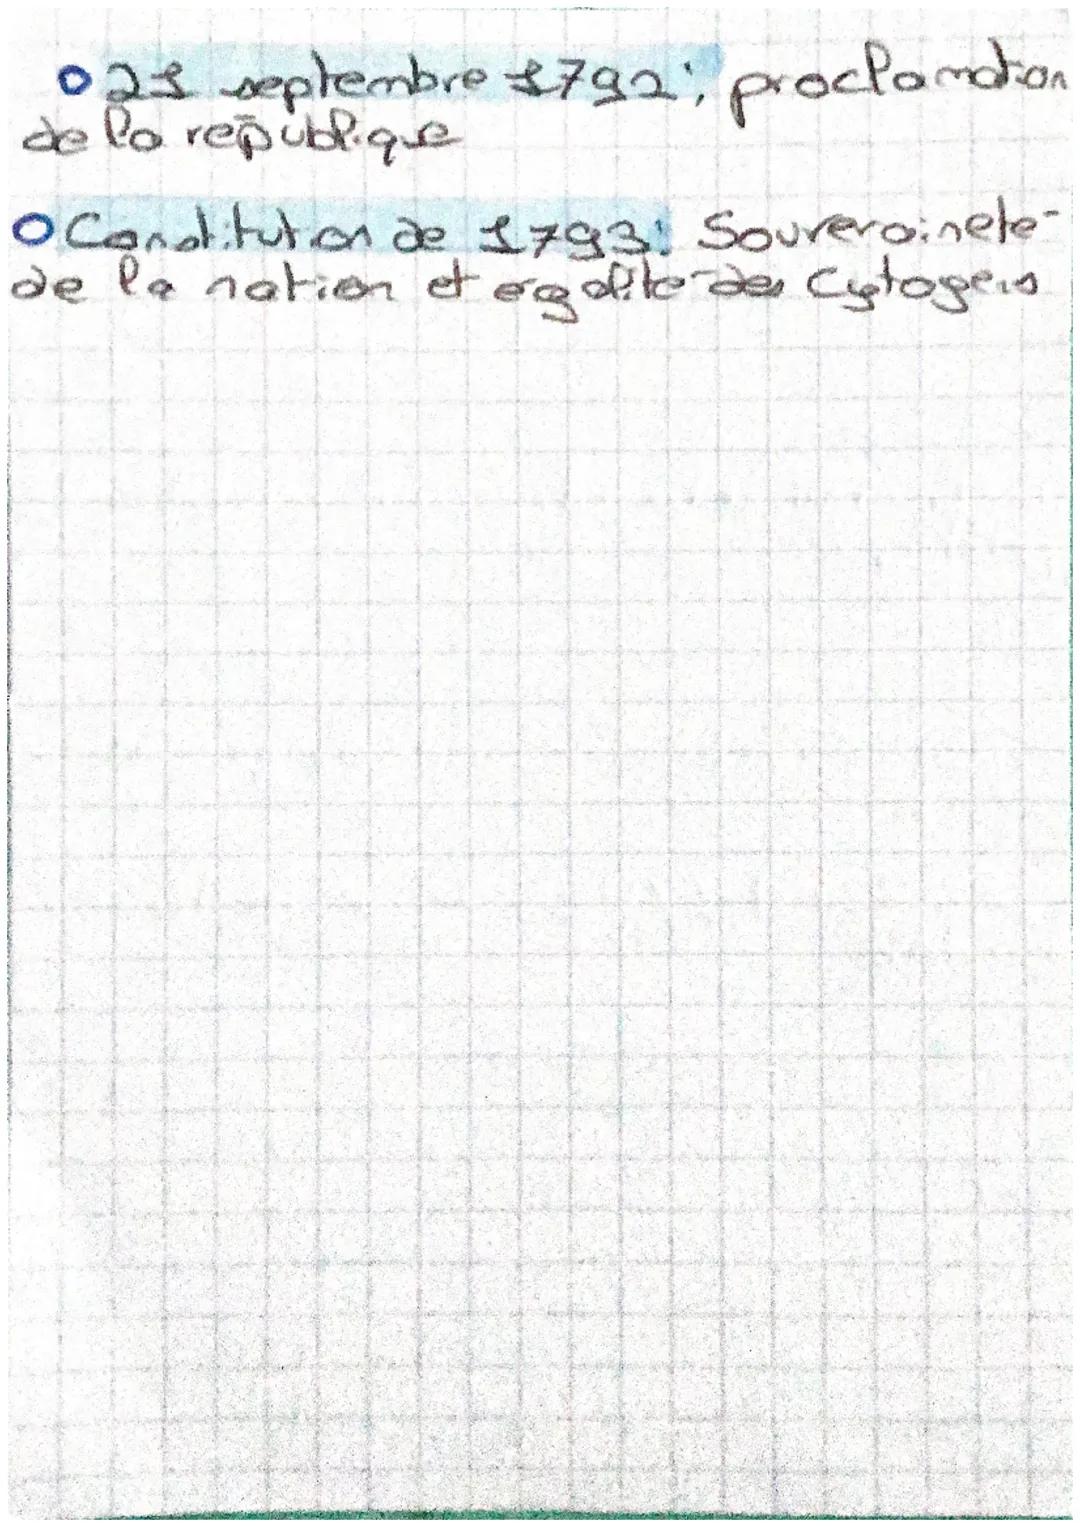 21 septembre 1792 : proclamation
de la république
Constitution de 1793 : Souveraineté
de la nation et egalité des Cytogens